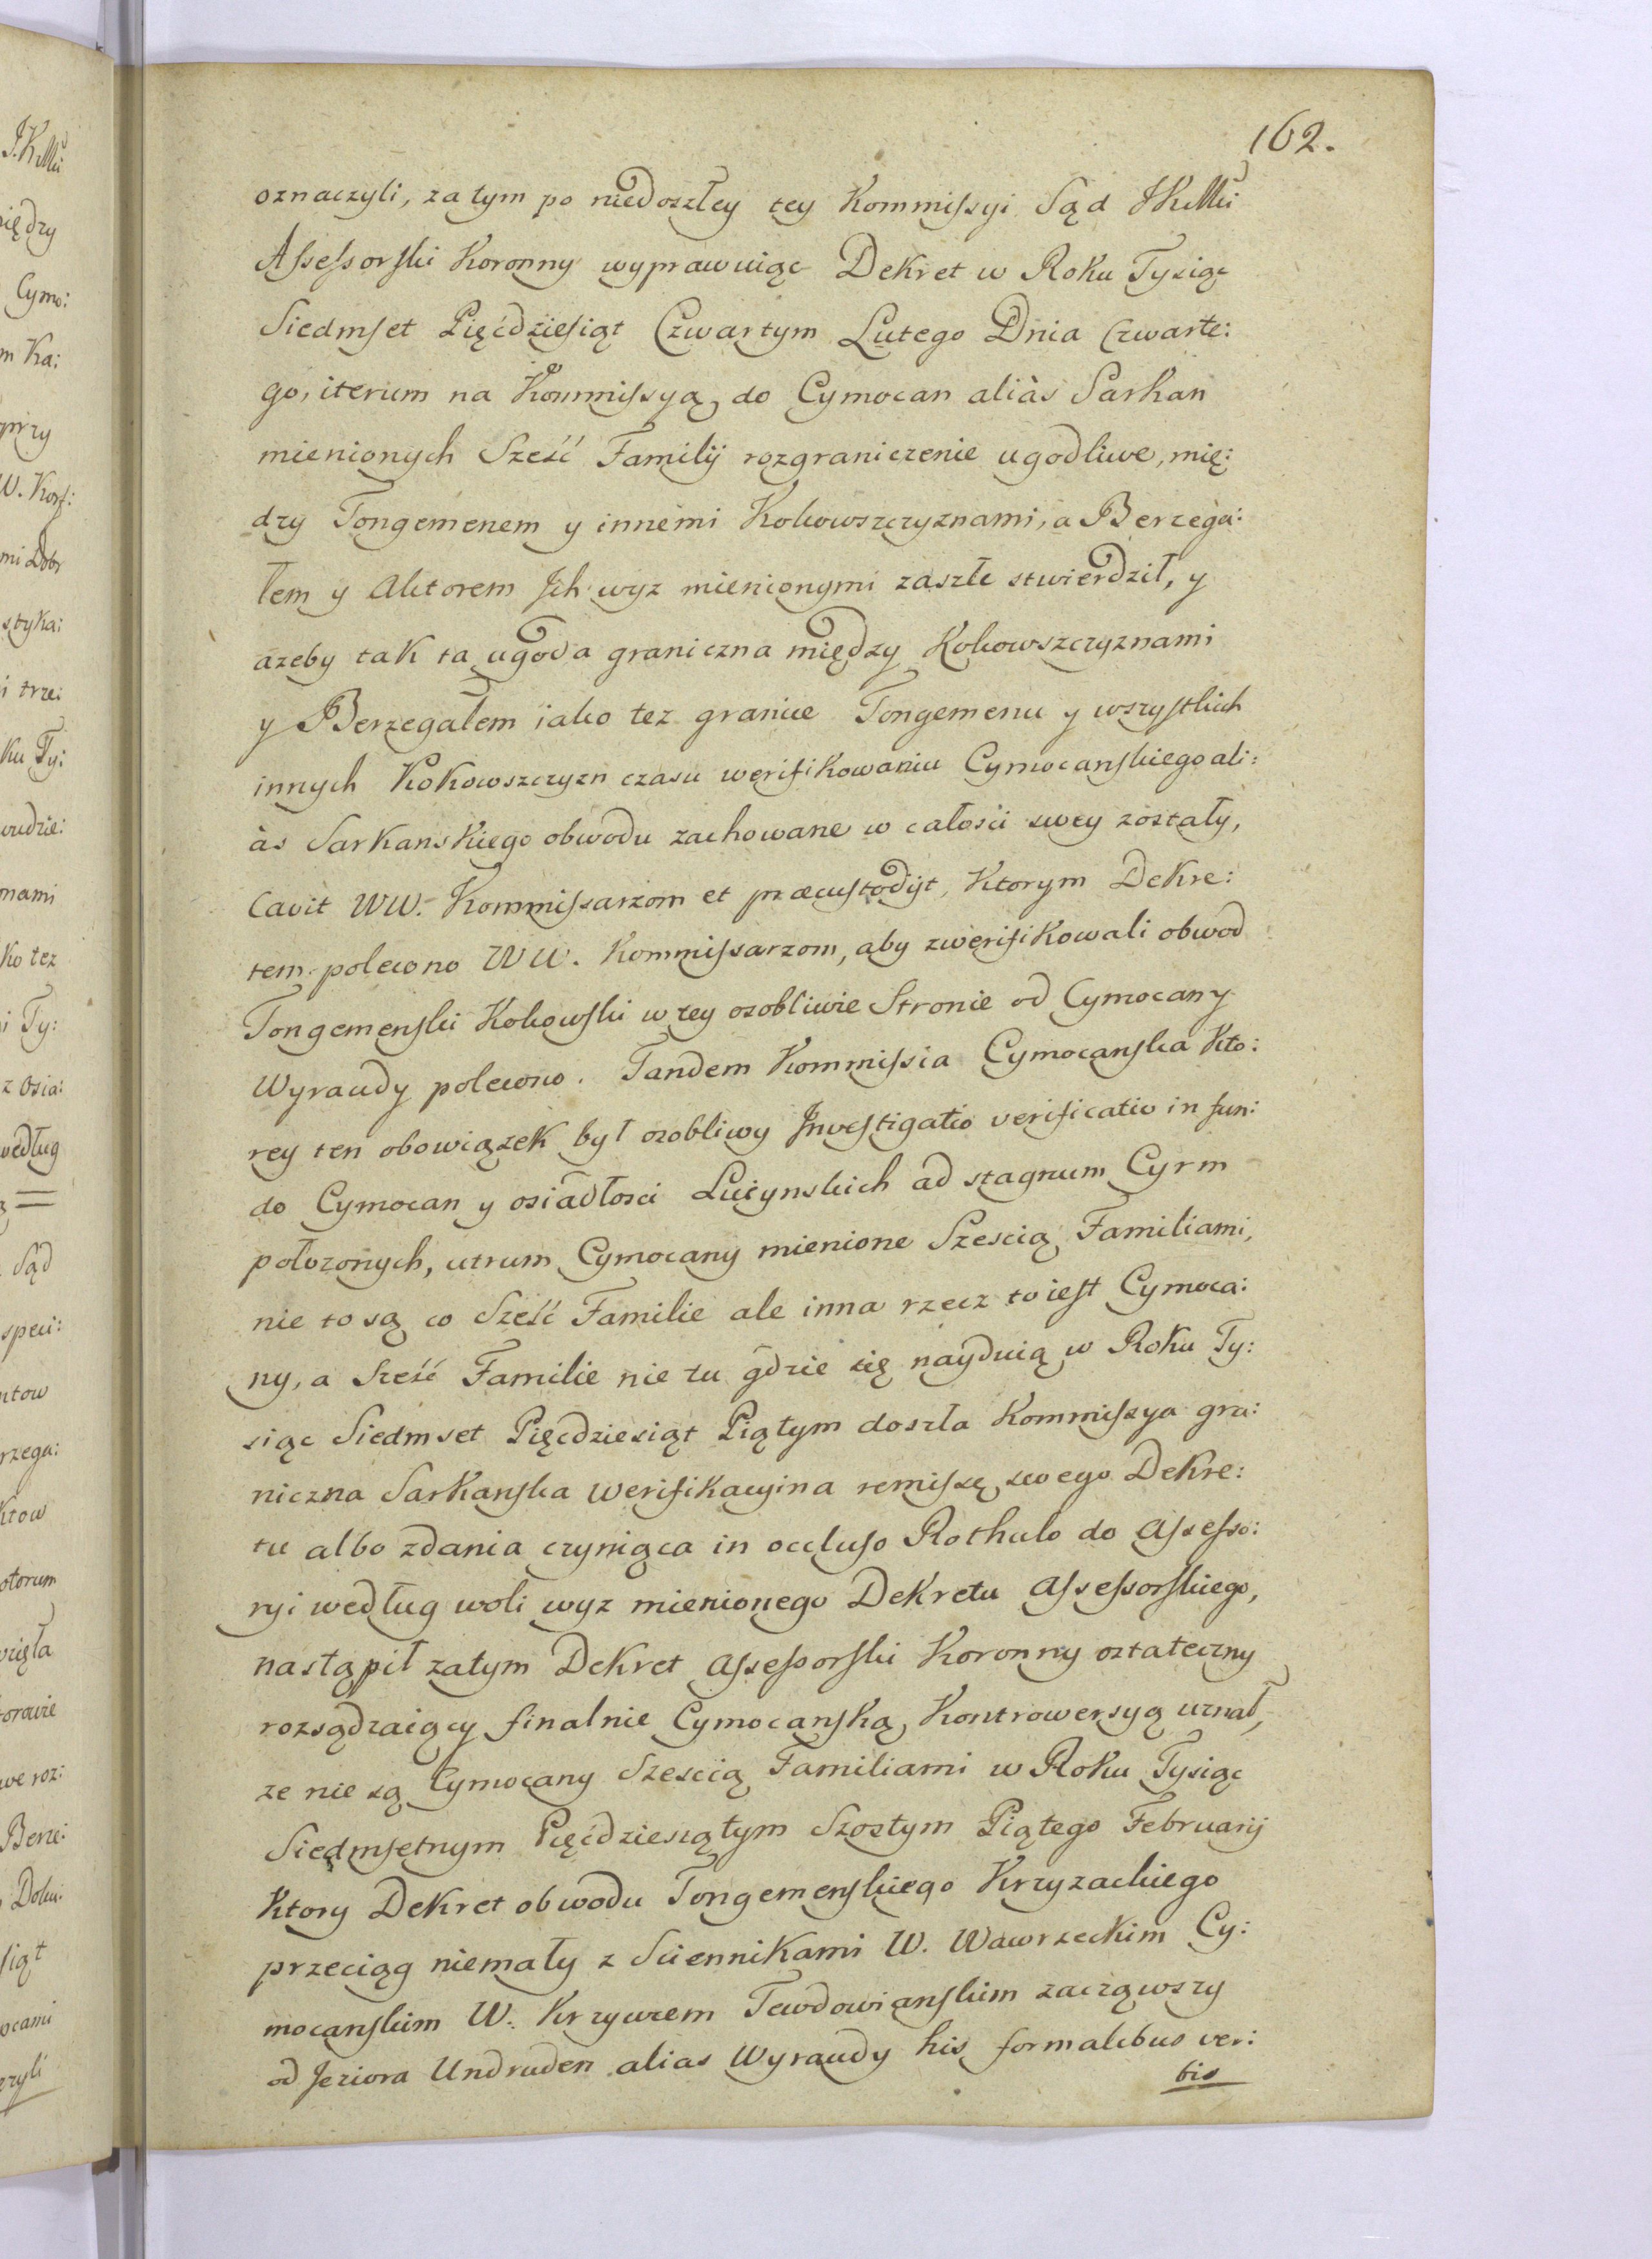 162.
oznaczyli, zatym po niedoszłey tey Kommissyi Sąd JKMci
Assessorski Koronny wyprawuiąc Dekret w Roku Tysiąc
Siedmset Pięćdziesiąt Czwartym Lutego Dnia Czwarte:
go, iterum na Kommissyą do Cymocan aliàs Sarkan
mienionych Sześć Familij rozgraniczenie ugodliwe, mię:
dzy Tongemenem y innemi Kokowszczyznami, a Berzega:
łem y Aktorem Ich wyz mienionymi zaszłe stwierdził, y
azeby tak ta ugoda graniczna między Kokowszczyznami
y Berzegałem iako tez granice Tongemenu y wszystkich
innych Kokowszczyzn czasu werifikowaniu Cymocanskiego ali:
às Sarkanskiego obwodu zachowane w całosci swey zostały,
Cavit WW. Kommissarzom et præcustodijt, Ktorym Dekre:
tem polecono WW. Kommissarzom, aby zwerifikowali obwod
Tongemenski Kokowski w tey osobliwie Stronie od Cymocany
Wyraudy polecono. Tandem Kommissia Cymocanska Kto:
rey ten obowiązek był osobliwy Investigatio verificatio in fun:
do Cymocan y osiadłosci Luiynskich ad stagnum Cyrm
położonych, utrum Cymocany mienione Szescią Familiami,
nie to są co Sześć Familie ale inna rzecz to iest Cymoca:
ny, a Sześć Familie nie tu gdzie się nayduią w Roku Ty:
siąc Siedmset Pięcdziesiąt Piątym doszła Kommissya gra:
niczna Sarkanska werifikacyina remissę swego Dekre:
tu albo zdania czyniąca in occluso Rothulo do Assesso:
ryi według woli wyz mienionego Dekretu Assessorskiego,
nastąpił zatym Dekret Assessorski Koronny ostateczny
rozsądzaiący finalnie Cymocanską Kontrowersyą uznał,
ze nie są Cymocany Szescią Familiami w Roku Tysiąc
Siedmsetnym Pięćdziesiątym Szostym Piątego Februarij
Ktory Dekret obwodu Tongemenskiego Krzyzackiego
przeciąg niemały z Sciennikami W. Wawrzeckim Cy:
mocanskim W. Krzywcem Tewdowianskim zacząwszy
od Jeziora Undruden alias Wyraudy his formalibus ver:
bis